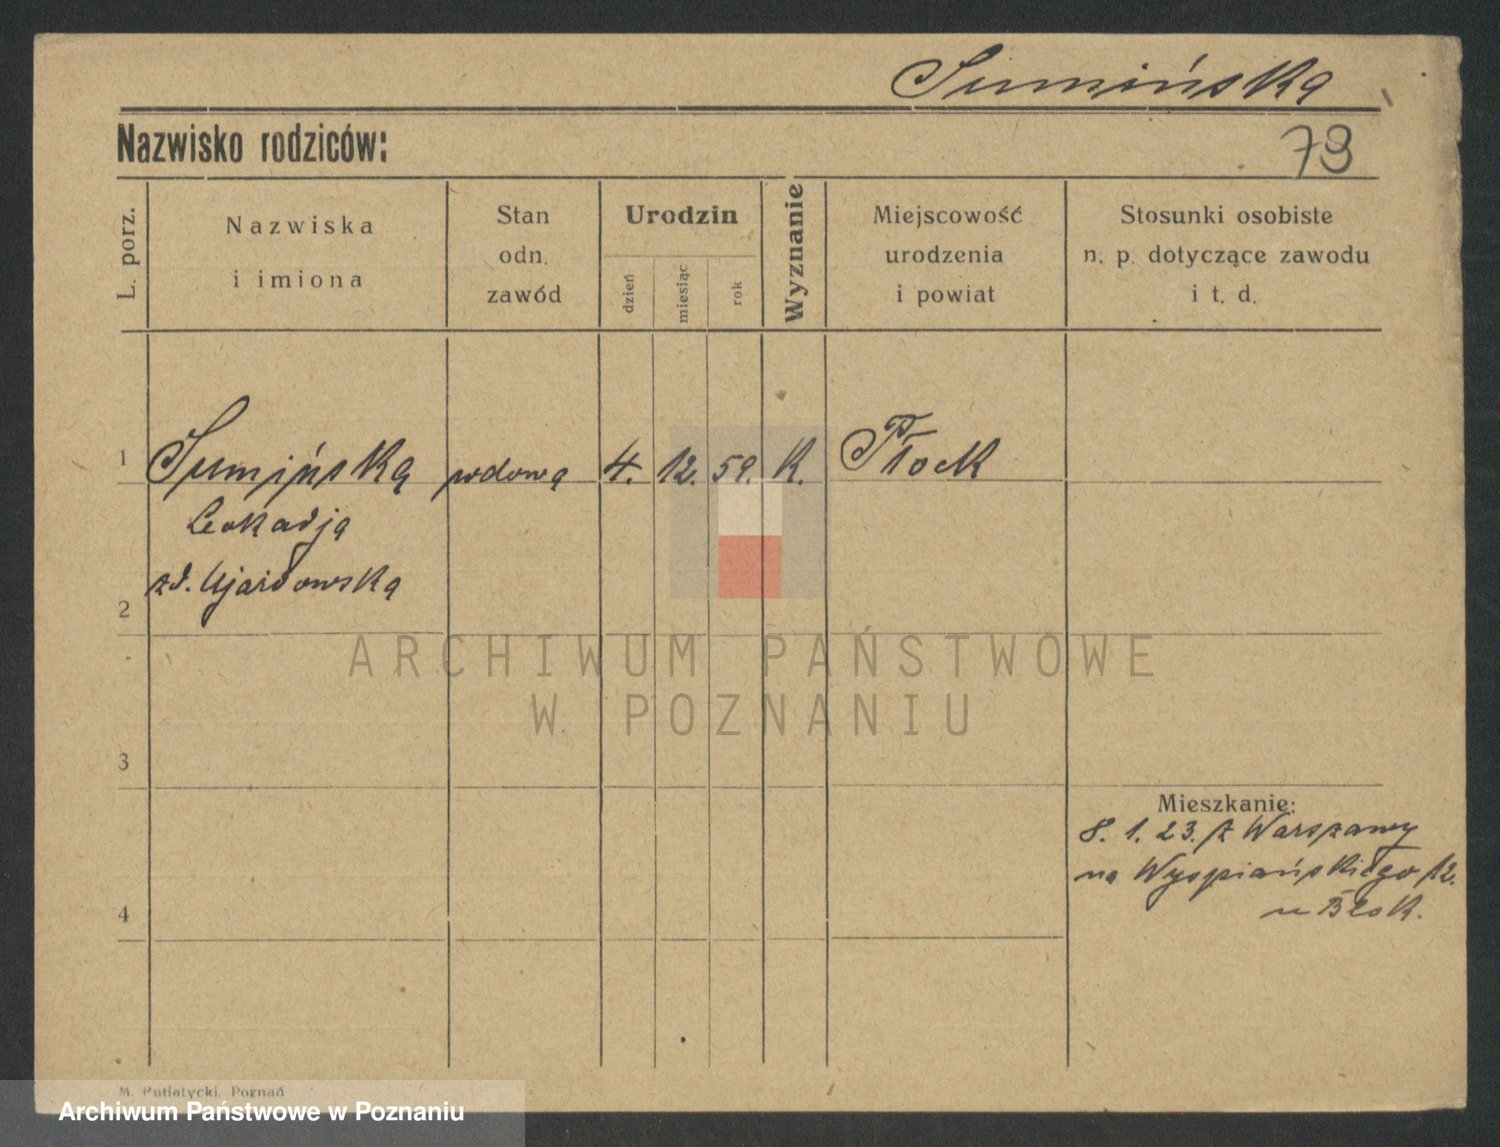 Sumińska
Nazwisko rodziców:
73
L. porz.
Nazwiska
i imiona
Stan
odn.
zawód
Urodzin
dzień
miesiąc
rok
Wyznanie
Miejscowość
urodzenia
i powiat
Stosunki osobiste
n. p. dotyczące zawodu
i t. d.
1 Sumińska wdowa 4. 12. 59. K. Płock
Leokadja
zd. Ujazdowska
2
ARCHIWUM PAŃSTWOWE
W POZNANIU
3
Mieszkanie:
8. 1. 23. z Warszawy
na Wyspiańskiego 12.
4
M. Putiatycki, Poznań
Archiwum Państwowe w Poznaniu